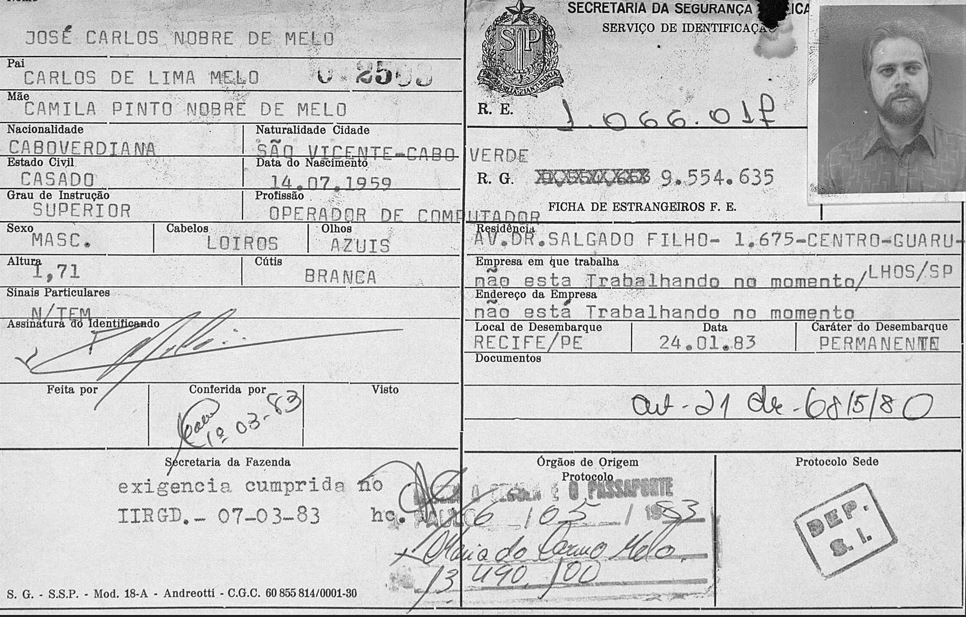 JOSÉ CARLOS NOBRE DE MELO
Pai
CARLOS DE LIMA MELO
Mãe
CAMILA PINTO NOBRE DE MELO
Nacionalidade
CABOVERDIANA
Naturalidade Cidade
SÃO VICENTE-CABO VERDE
Estado Civil
CASADO
Data do Nascimento
14.07.1959
Grau de Instrução
SUPERIOR
Profissão
OPERADOR DE COMPUTADOR
Sexo
MASC.
Cabelos
LOIROS
Olhos
AZUIS
Altura
1,71
Cútis
BRANCA
Sinais Particulares
N/TEM
Assinatura do Identificando
Feita por
Conferida por
1º 03-83
Visto
Secretaria da Fazenda
exigencia cumprida no
IIRGD.- 07-03-83
S. G. - S.S.P. - Mod. 18-A - Andreotti - C.G.C. 60 855 814/0001-30
SECRETARIA DA SEGURANÇA
SERVIÇO DE IDENTIFICAÇÃO
SP
R. E.
R. G. 9.554.635
FICHA DE ESTRANGEIROS F. E.
Residência
AV.DR.SALGADO FILHO- 1.675-CENTRO-GUARU-
LHOS/SP
Empresa em que trabalha
não esta Trabalhando no momento/
Endereço da Empresa
não esta Trabalhando no momento
Local de Desembarque
RECIFE/PE
Data
24.01.83
Caráter do Desembarque
PERMANENTE
Documentos
art-21 de-68/5/80
Órgãos de Origem
Protocolo
É O PASSAPORTE
6 / 05 / 1983
Maria do Carmo Melo
13 490,100
Protocolo Sede
DEP.
S. I.